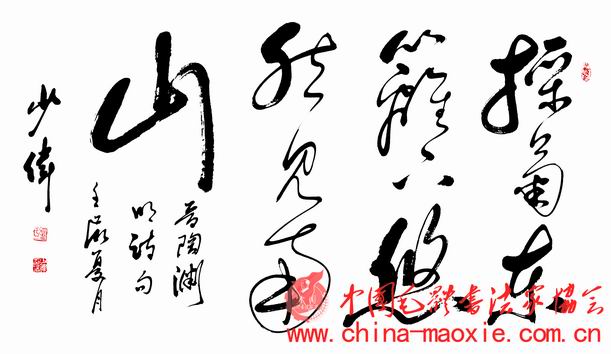 採菊東
籬下悠
然見南
山
晉陶淵
明詩句
壬辰夏月
少偉
中国毛體书法家協会
www.china-maoxie.com.cn